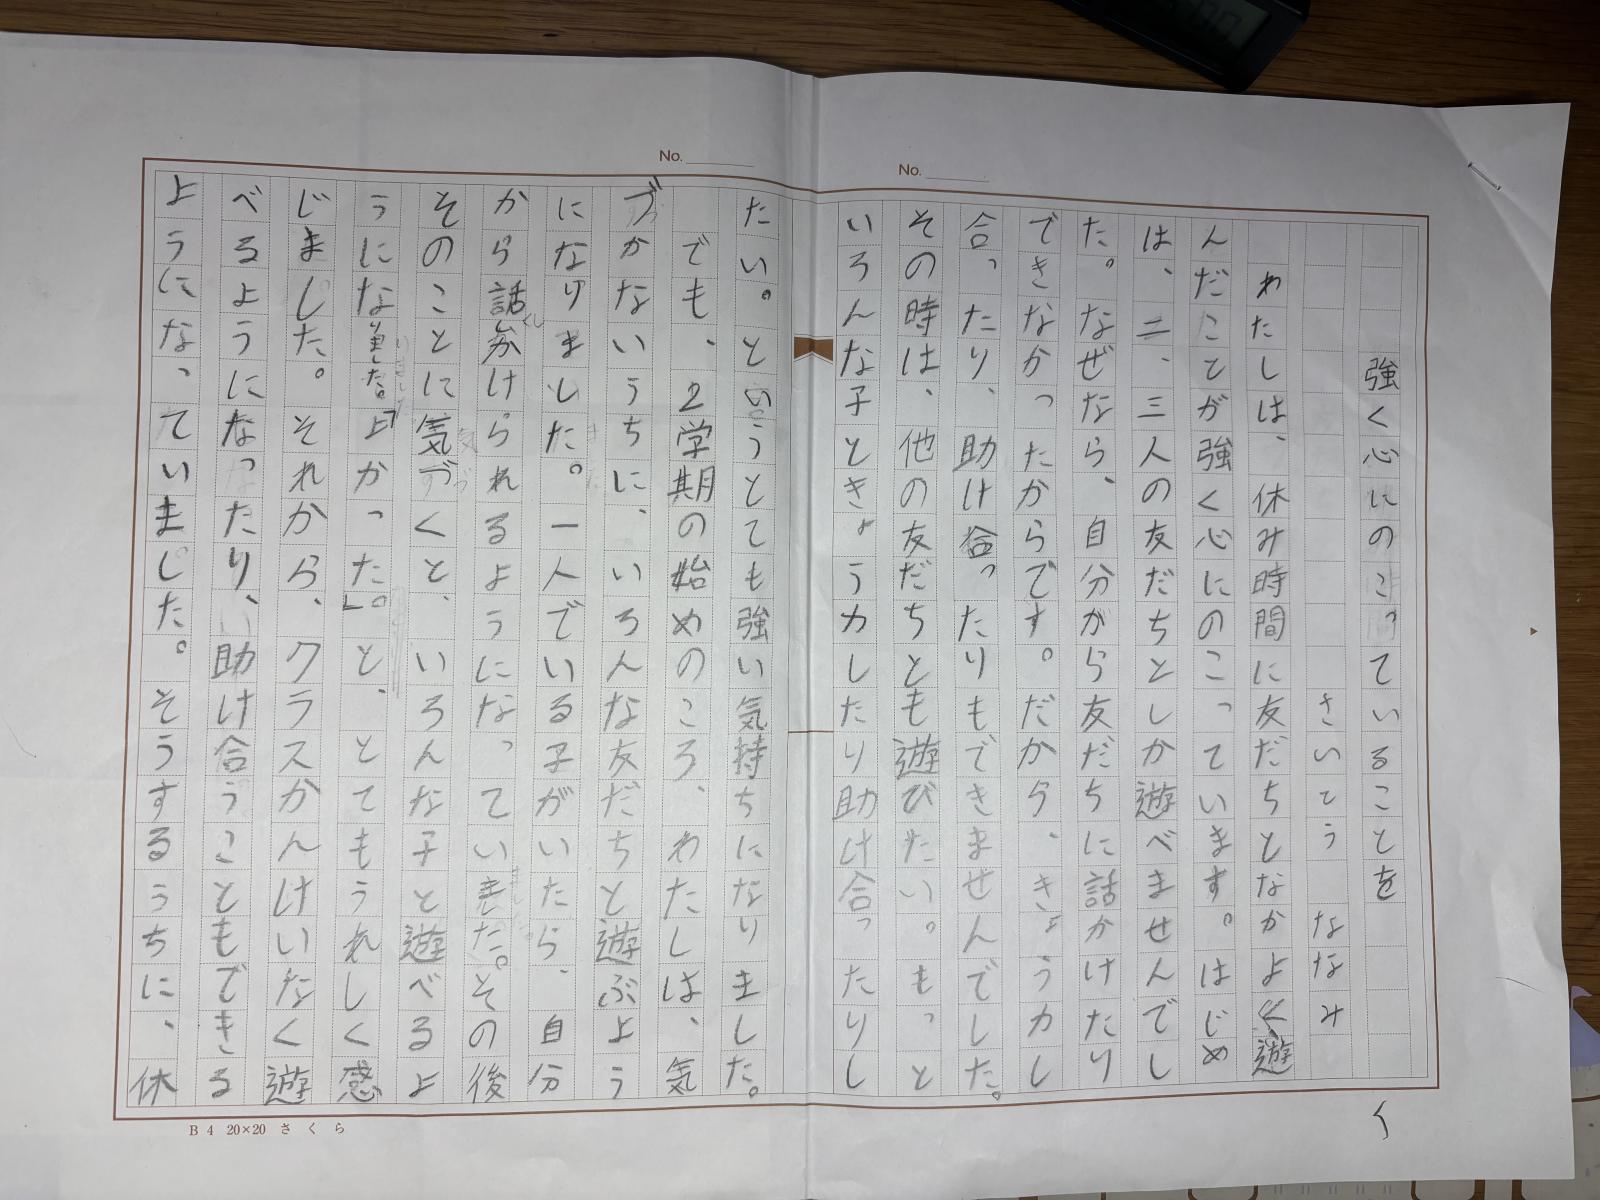 No.
No.
強く心にのこっていることを
さいとう　ななみ
わたしは、休み時間に友だちとなかよく遊
んだことが強く心にのこっています。はじめ
は、二、三人の友だちとしか遊べませんでし
た。なぜなら、自分がら友だちに話かけたり
できなかったからです。だから、きょうカし
合ったり、助け合ったりもできませんでした。
その時は、他の友だちとも遊びたい。もっと
いろんな子ときょうカしたり助け合ったりし
たい。というとても強い気持ちになりました。
でも、2学期の始めのころ、わたしは、気
づかないうちに、いろんな友だちと遊ぶよう
になりました。一人でいる子がいたら、自分
から話しかけられるようになっていきました。その後
そのことに気づくと、いろんな子と遊べるよ
うになりました。「よかった」。と、とてもうれしく感
じました。それから、クラスかんけいなく遊
べるようになったり、助け合うこともできる
ようになっていました。そうするうちに、休
B4 20×20 さくら
く